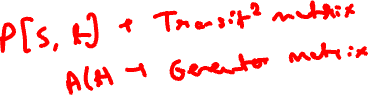 P[s, t] → Transitⁿ matrix
A(t) → Generator matrix